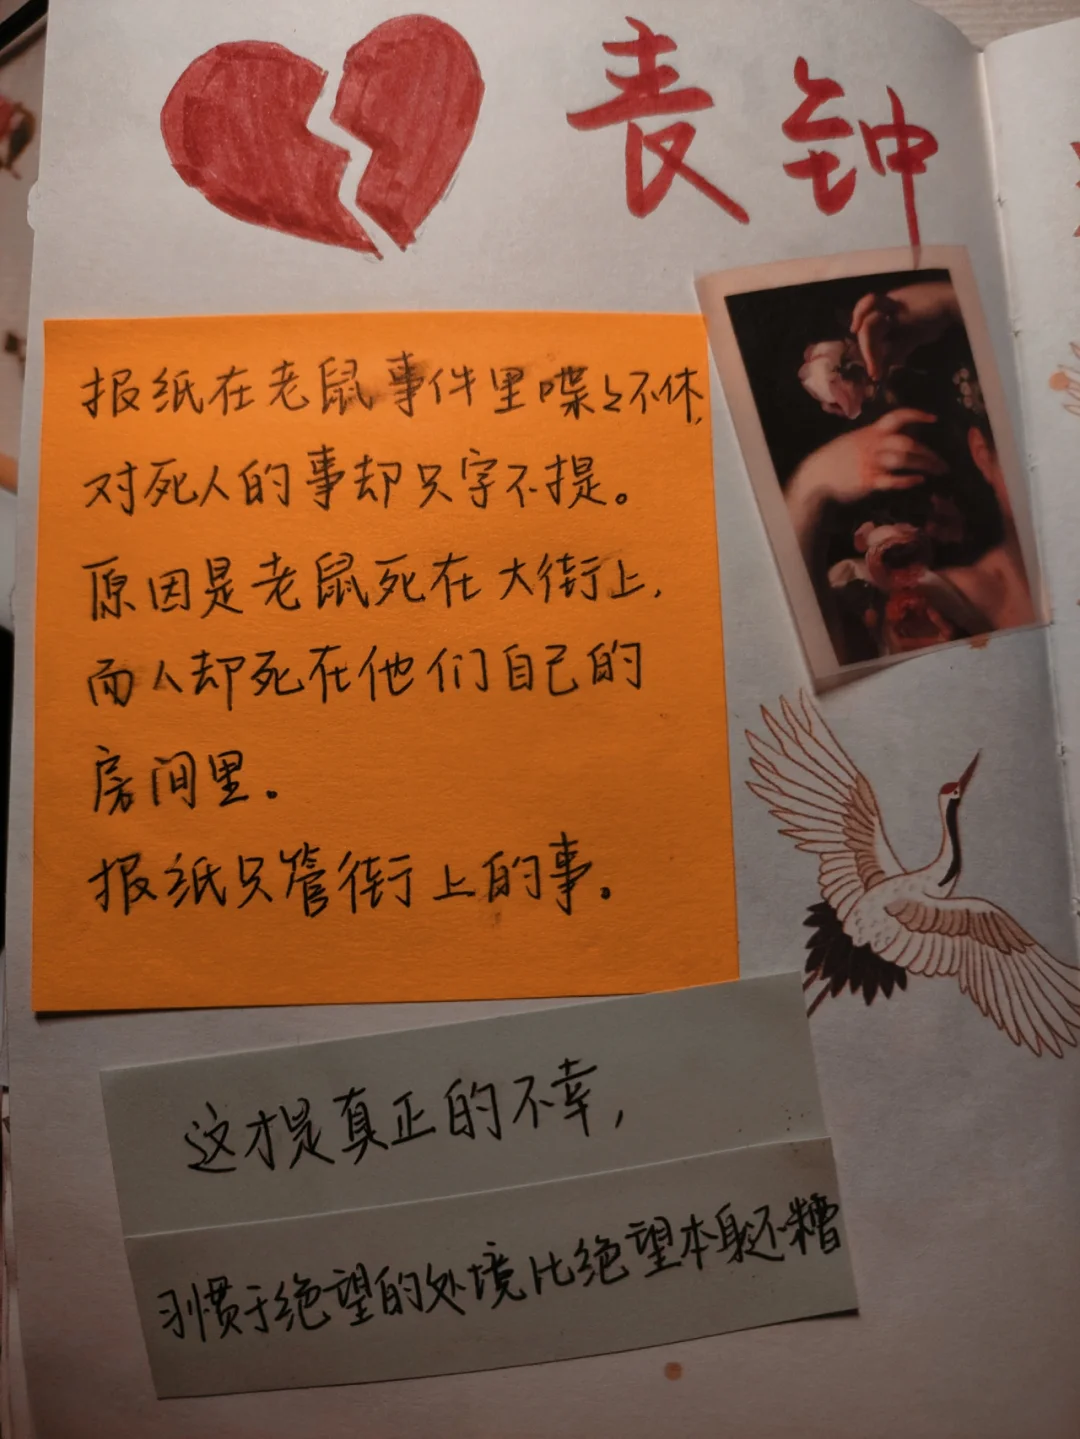 丧钟
报纸在老鼠事件里喋々不休,
对死人的事却只字不提。
原因是老鼠死在大街上,
而人却死在他们自己的
房间里。
报纸只管街上的事。
这才是真正的不幸,
习惯于绝望的处境比绝望本身还糟